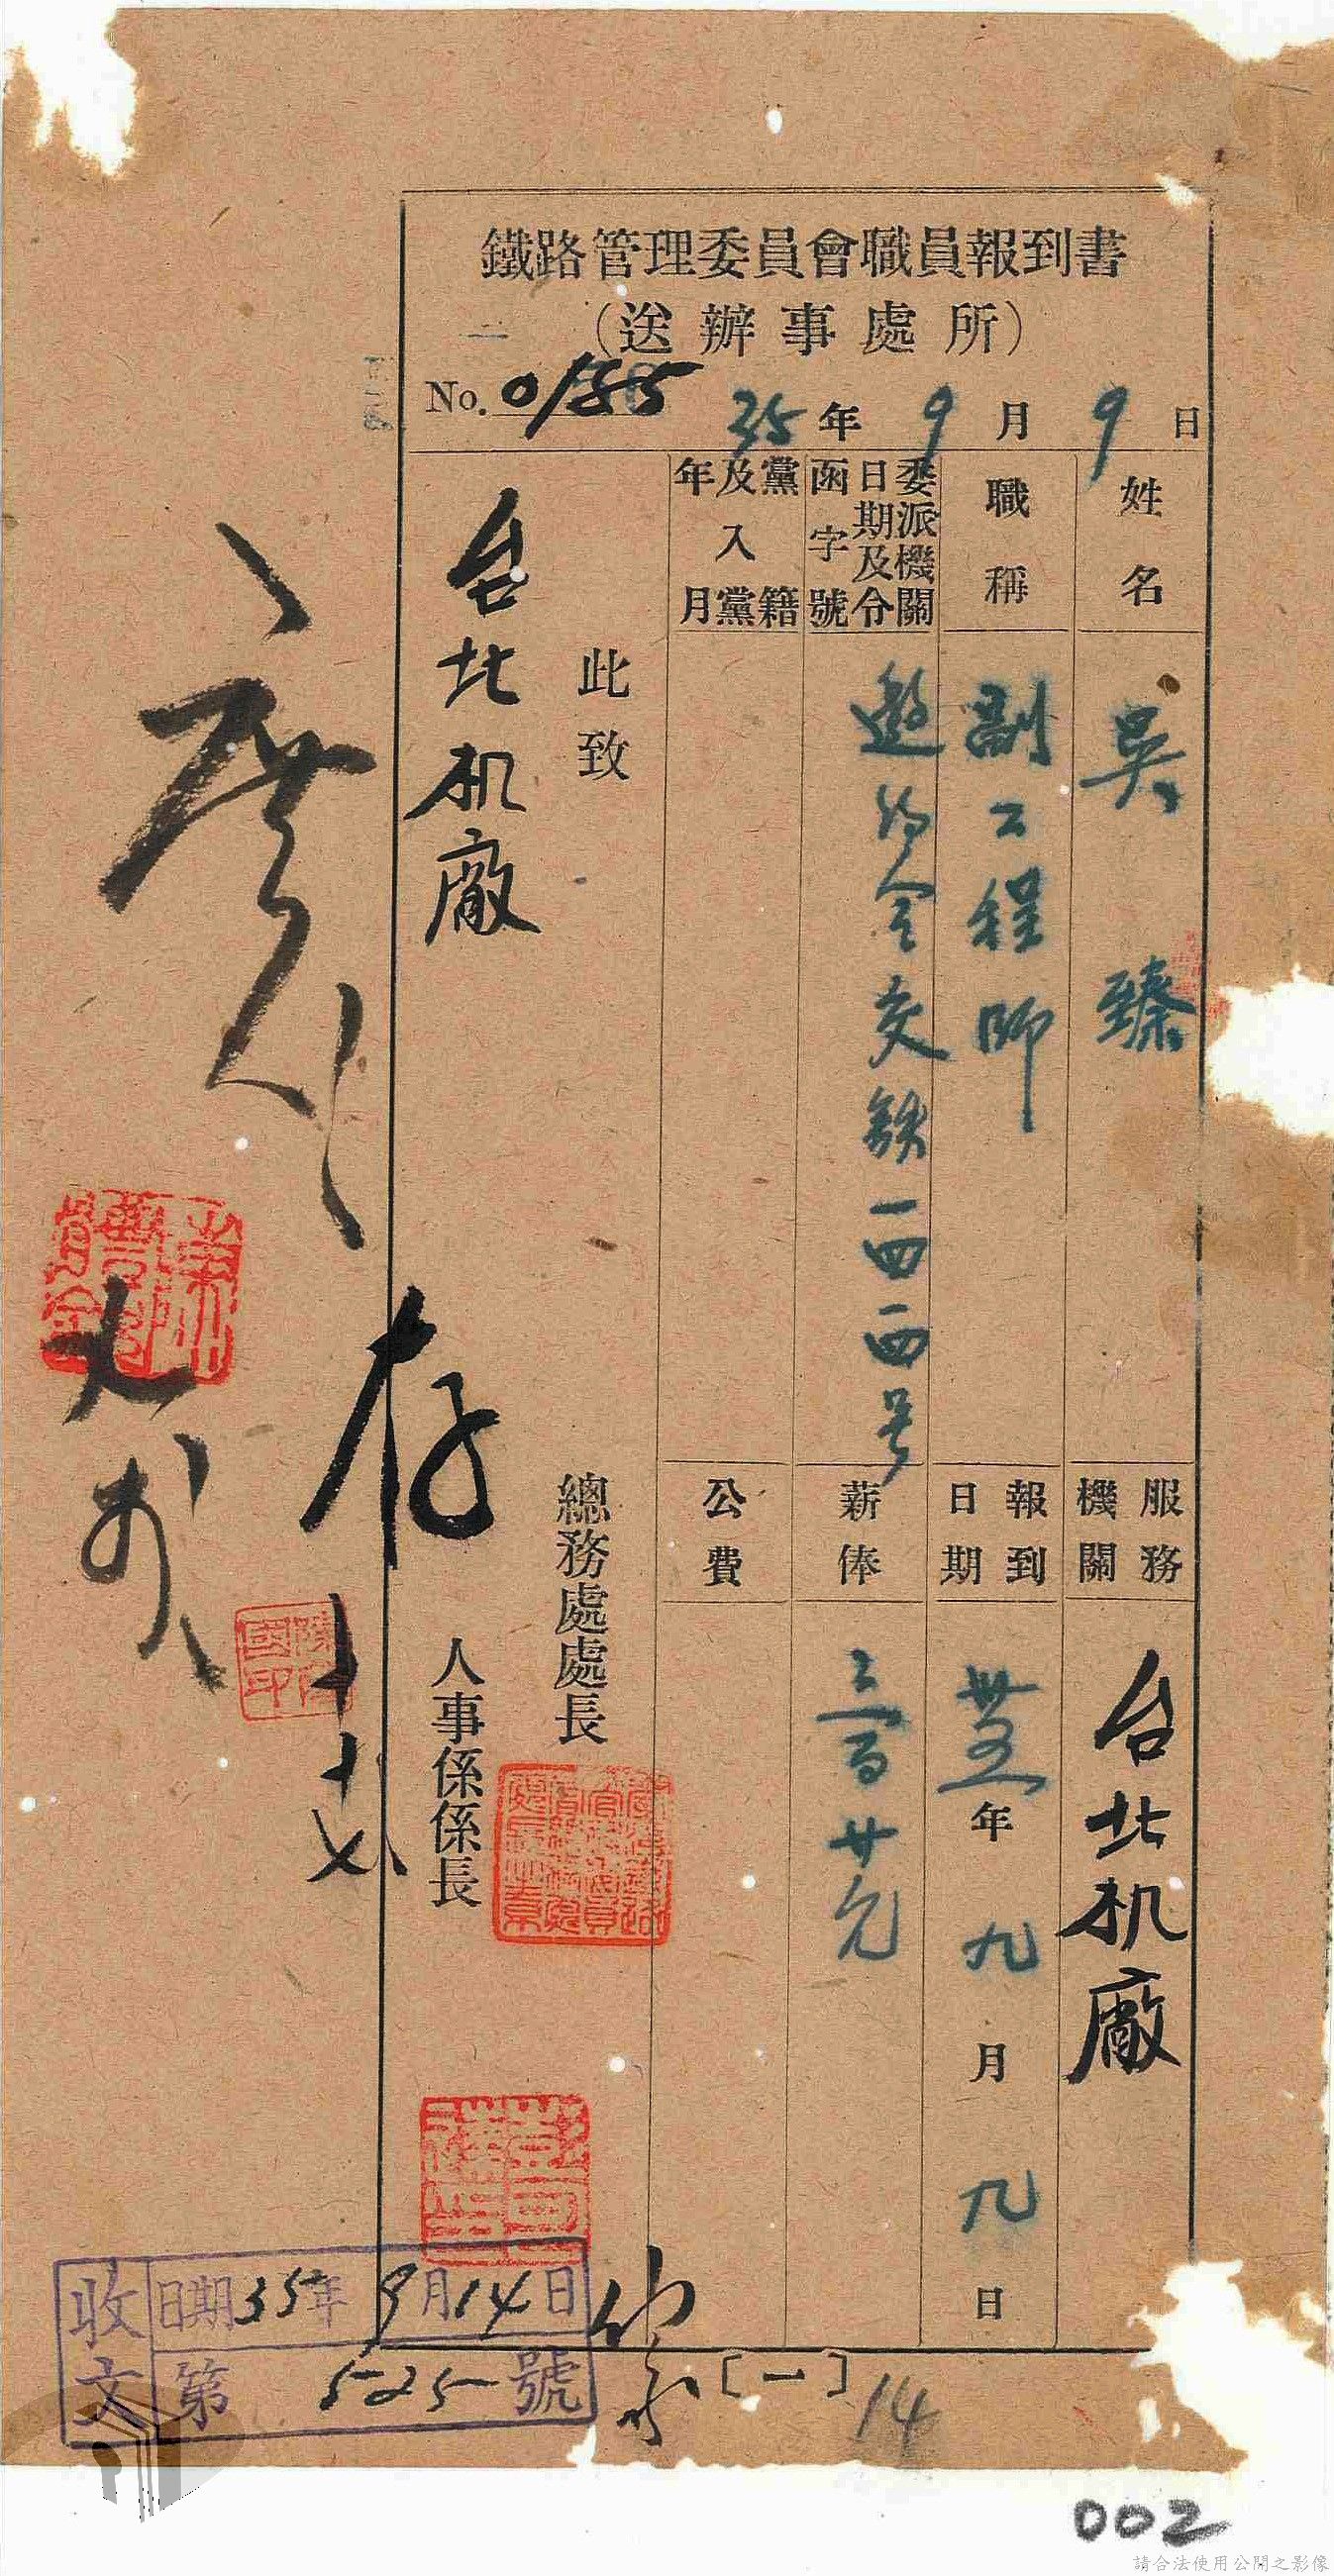 鐵路管理委員會職員報到書
（送辦事處所）
No. 0155
35年9月9日
姓名
吳臻
服務機關
台北机廠
職稱
副工程師
報到日期
卅五年九月九日
委派機關日期及令函字號
令交鉄一四四号
薪俸
三百廿元
黨籍及入黨年月
公費
此致
台北机廠
總務處處長
人事係係長
存
收文
日期35年9月14日
第525號
[一]
14
002
請合法使用公開之影像